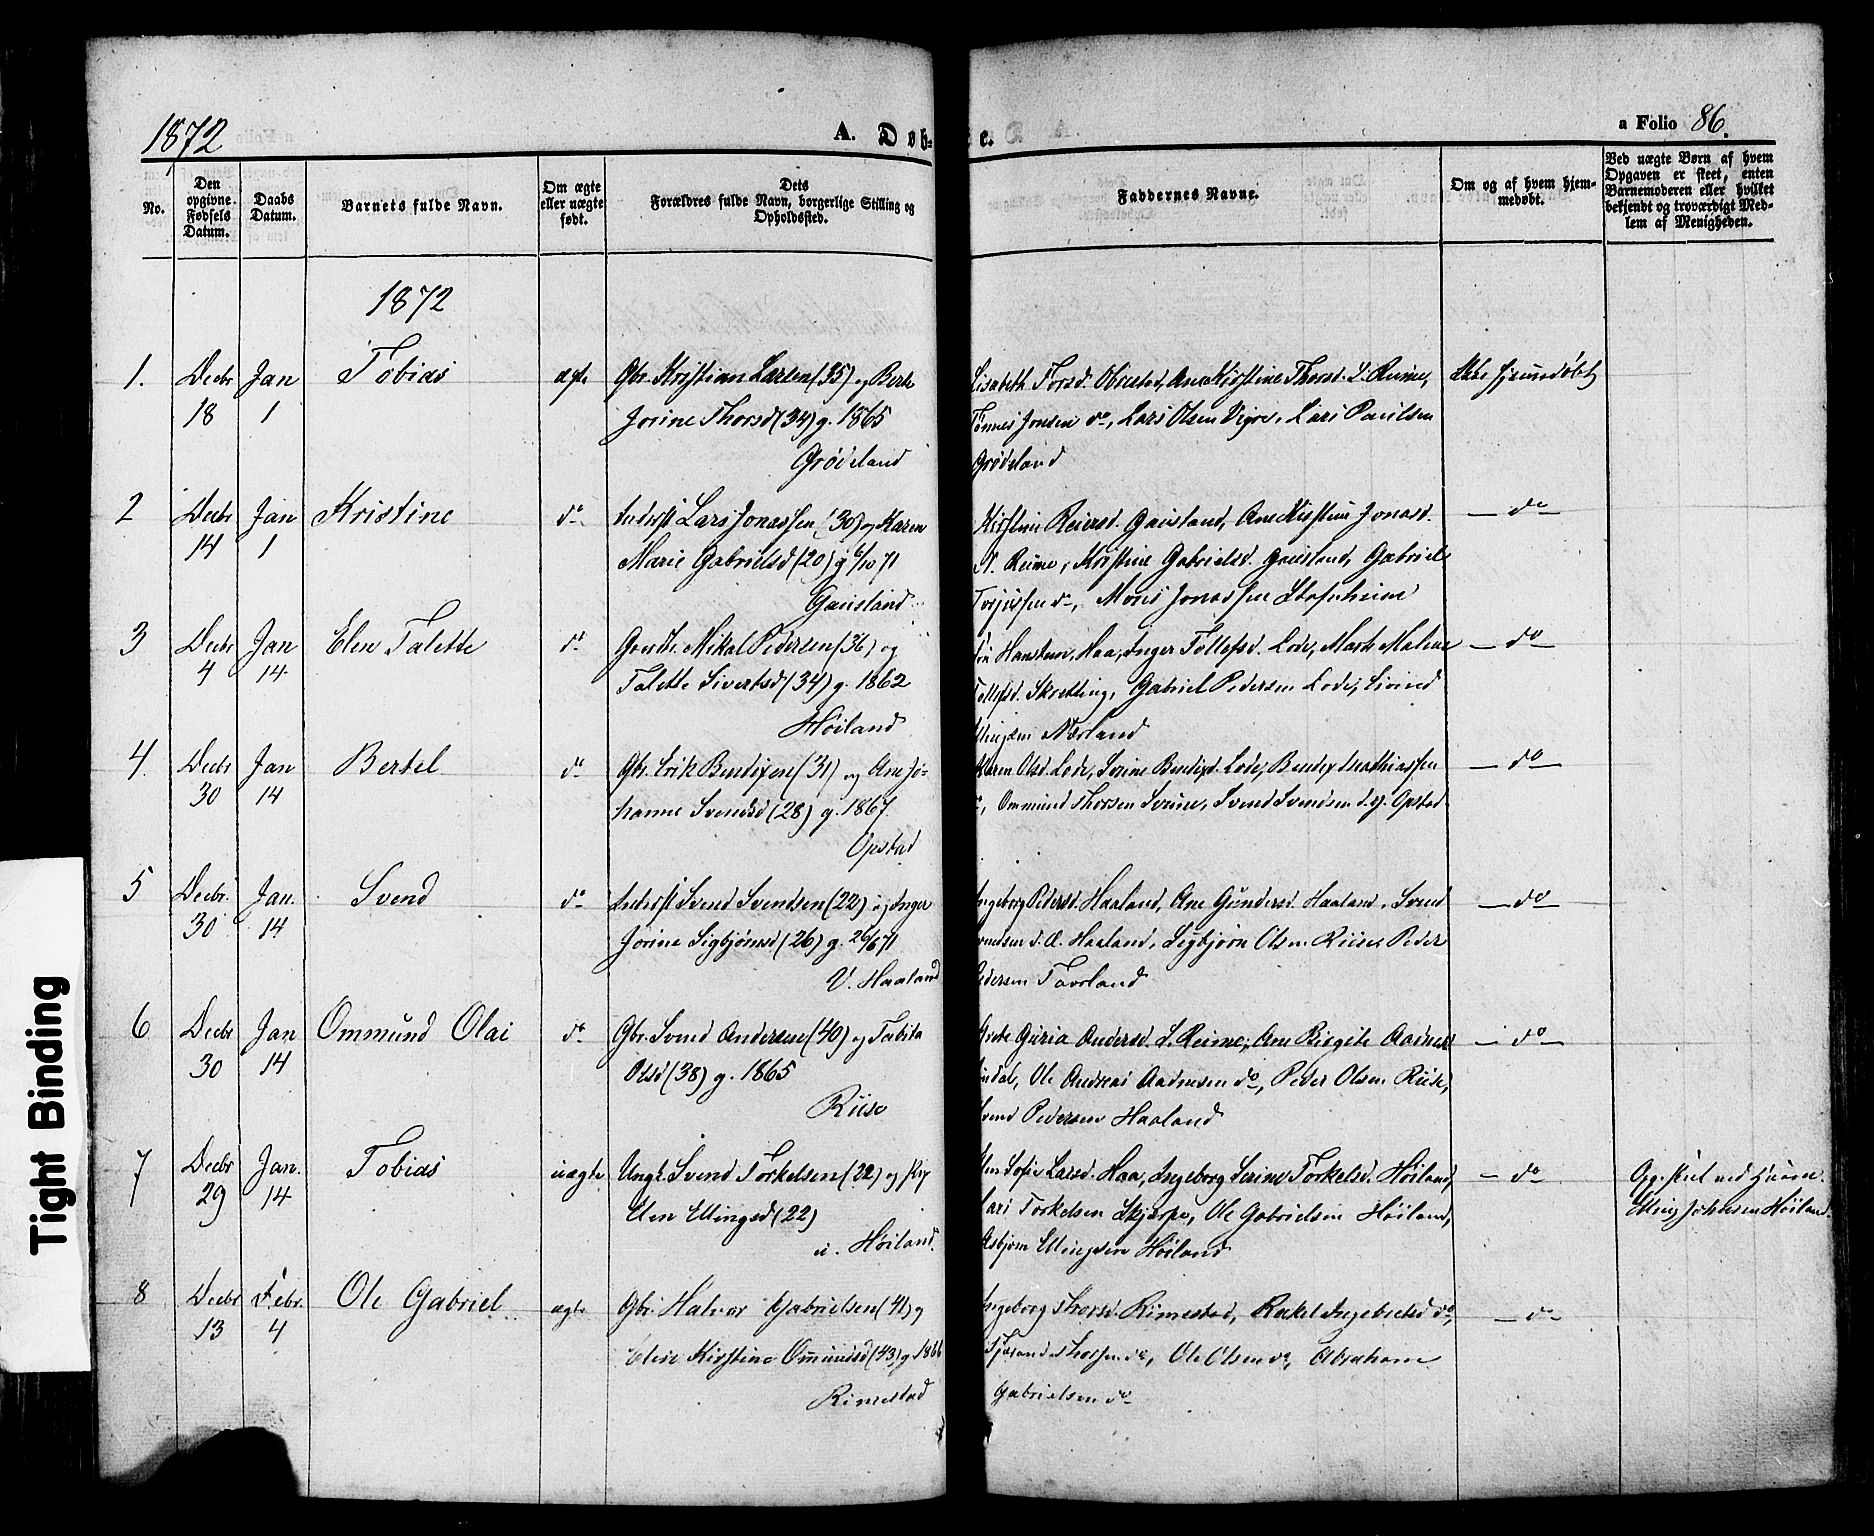 1872
A. Døb-
e.
a Folio 86.
No.
Den opgivne Fødsels Datum.
Daabs Datum.
Barnets fulde Navn.
Om ægte eller uægte født.
Dets Forældres fulde Navn, borgerlige Stilling og Opholdssted.
Faddernes Navne.
Om og af hvem hjemmedøbt.
Ved uægte Børn af hvem Opgaven er skeet, enten Barnemoderen eller hvilket bekjendt og troværdigt Medlem af Menigheden.
1872
1. Decbr Jan Tobias ægte Gbr. Kristian Larsen (35) og Berte
18 1 Jorine Thorsd (34) g. 1865
Grødeland
Lisabeth Torsd. Obrestad, Ane Kirstine Thorsd. L. Reime, Ikke hjemdøbt
Tønnes Jonsen do, Lars Olsen Vigre, Lars Paulsen
Grødeland
2 Decbr Jan Kristine do Lars Jonassen (30) og Karen
14 1 Marie Gabrielsd (20) g 6/10 71
Gausland
Kirstine Reiersd. Gausland, Ane Kirstine Jonasd. do
N. Reime, Kristine Gabrielsd. Gausland, Gabriel
do, Mons Jonassen Stofnheim
3 Decbr Jan Elen Talette do Mikal Pedersen (36) og
4 14 Talette Sivertsd (34) g. 1862
Høiland
Haa, Inger Tollefsd. Lode, Marte Malene do
Tollefsd. Skretting, Gabriel Pedersen Lode, Eivind
Nærland
4. Decbr Jan Bertel do Gbr. Erik Bendixen (31) og Ane Jo-
30 14 hanne Svendsd (28) g. 1867.
Opstad
Karen Olsd. Lode, Serine Bendixd. Lode, Bendix Mathiassen do
do, Ommund Thorsen Svene, Svend Svendsen d.y. Opstad
5 Decbr. Jan. Svend do Svend Svendsen (22) og Inger
30 14 Jorine Sigbjørnsd (26) g. 26/6 71
V. Haaland
Ingeborg Pedersd. Haaland, Ane Gundersd. Haaland, Svend do
Svendsen d. Æ. Haaland, Sigbjørn Olsen Riise, Peder
Pedersen Tavrland
6 Decbr Jan Ommund Olai do Gbr. Svend Andersen (40) og Tabita
30 14 Olsd (38) g. 1865
Riise
Guria Andersd. S. Reime, Ane Birgite do
Ole Andreas Aadnesen do, Peder Olsen Riise,
Svend Pedersen Haaland
7 Decbr Jan. Tobias uægte Ungk. Svend Torkelsen (22) og Pig
29 14 Elen Ellingsd (22)
u. Høiland.
Elen Sofie Larsd. Haa, Ingeborg Serine Torkelsd. Høiland, do
Lars Torkelsen Skjærpe, Ole Gabrielsen Høiland,
Asbjørn Ellingsen Høiland
Elling Johnsen Høiland.
8 Decbr Febr. Ole Gabriel ægte Gbr. Halvor Gabrielsen (41) og
13 4 Elise Kirstine Ommundsd (43) g. 1866
Rimestad
Ingeborg Thorsd. Rimestad, Rakel Ingebretsd do, do
do, Ole Olsen do, Abraham
Gabrielsen do
Tight Binding